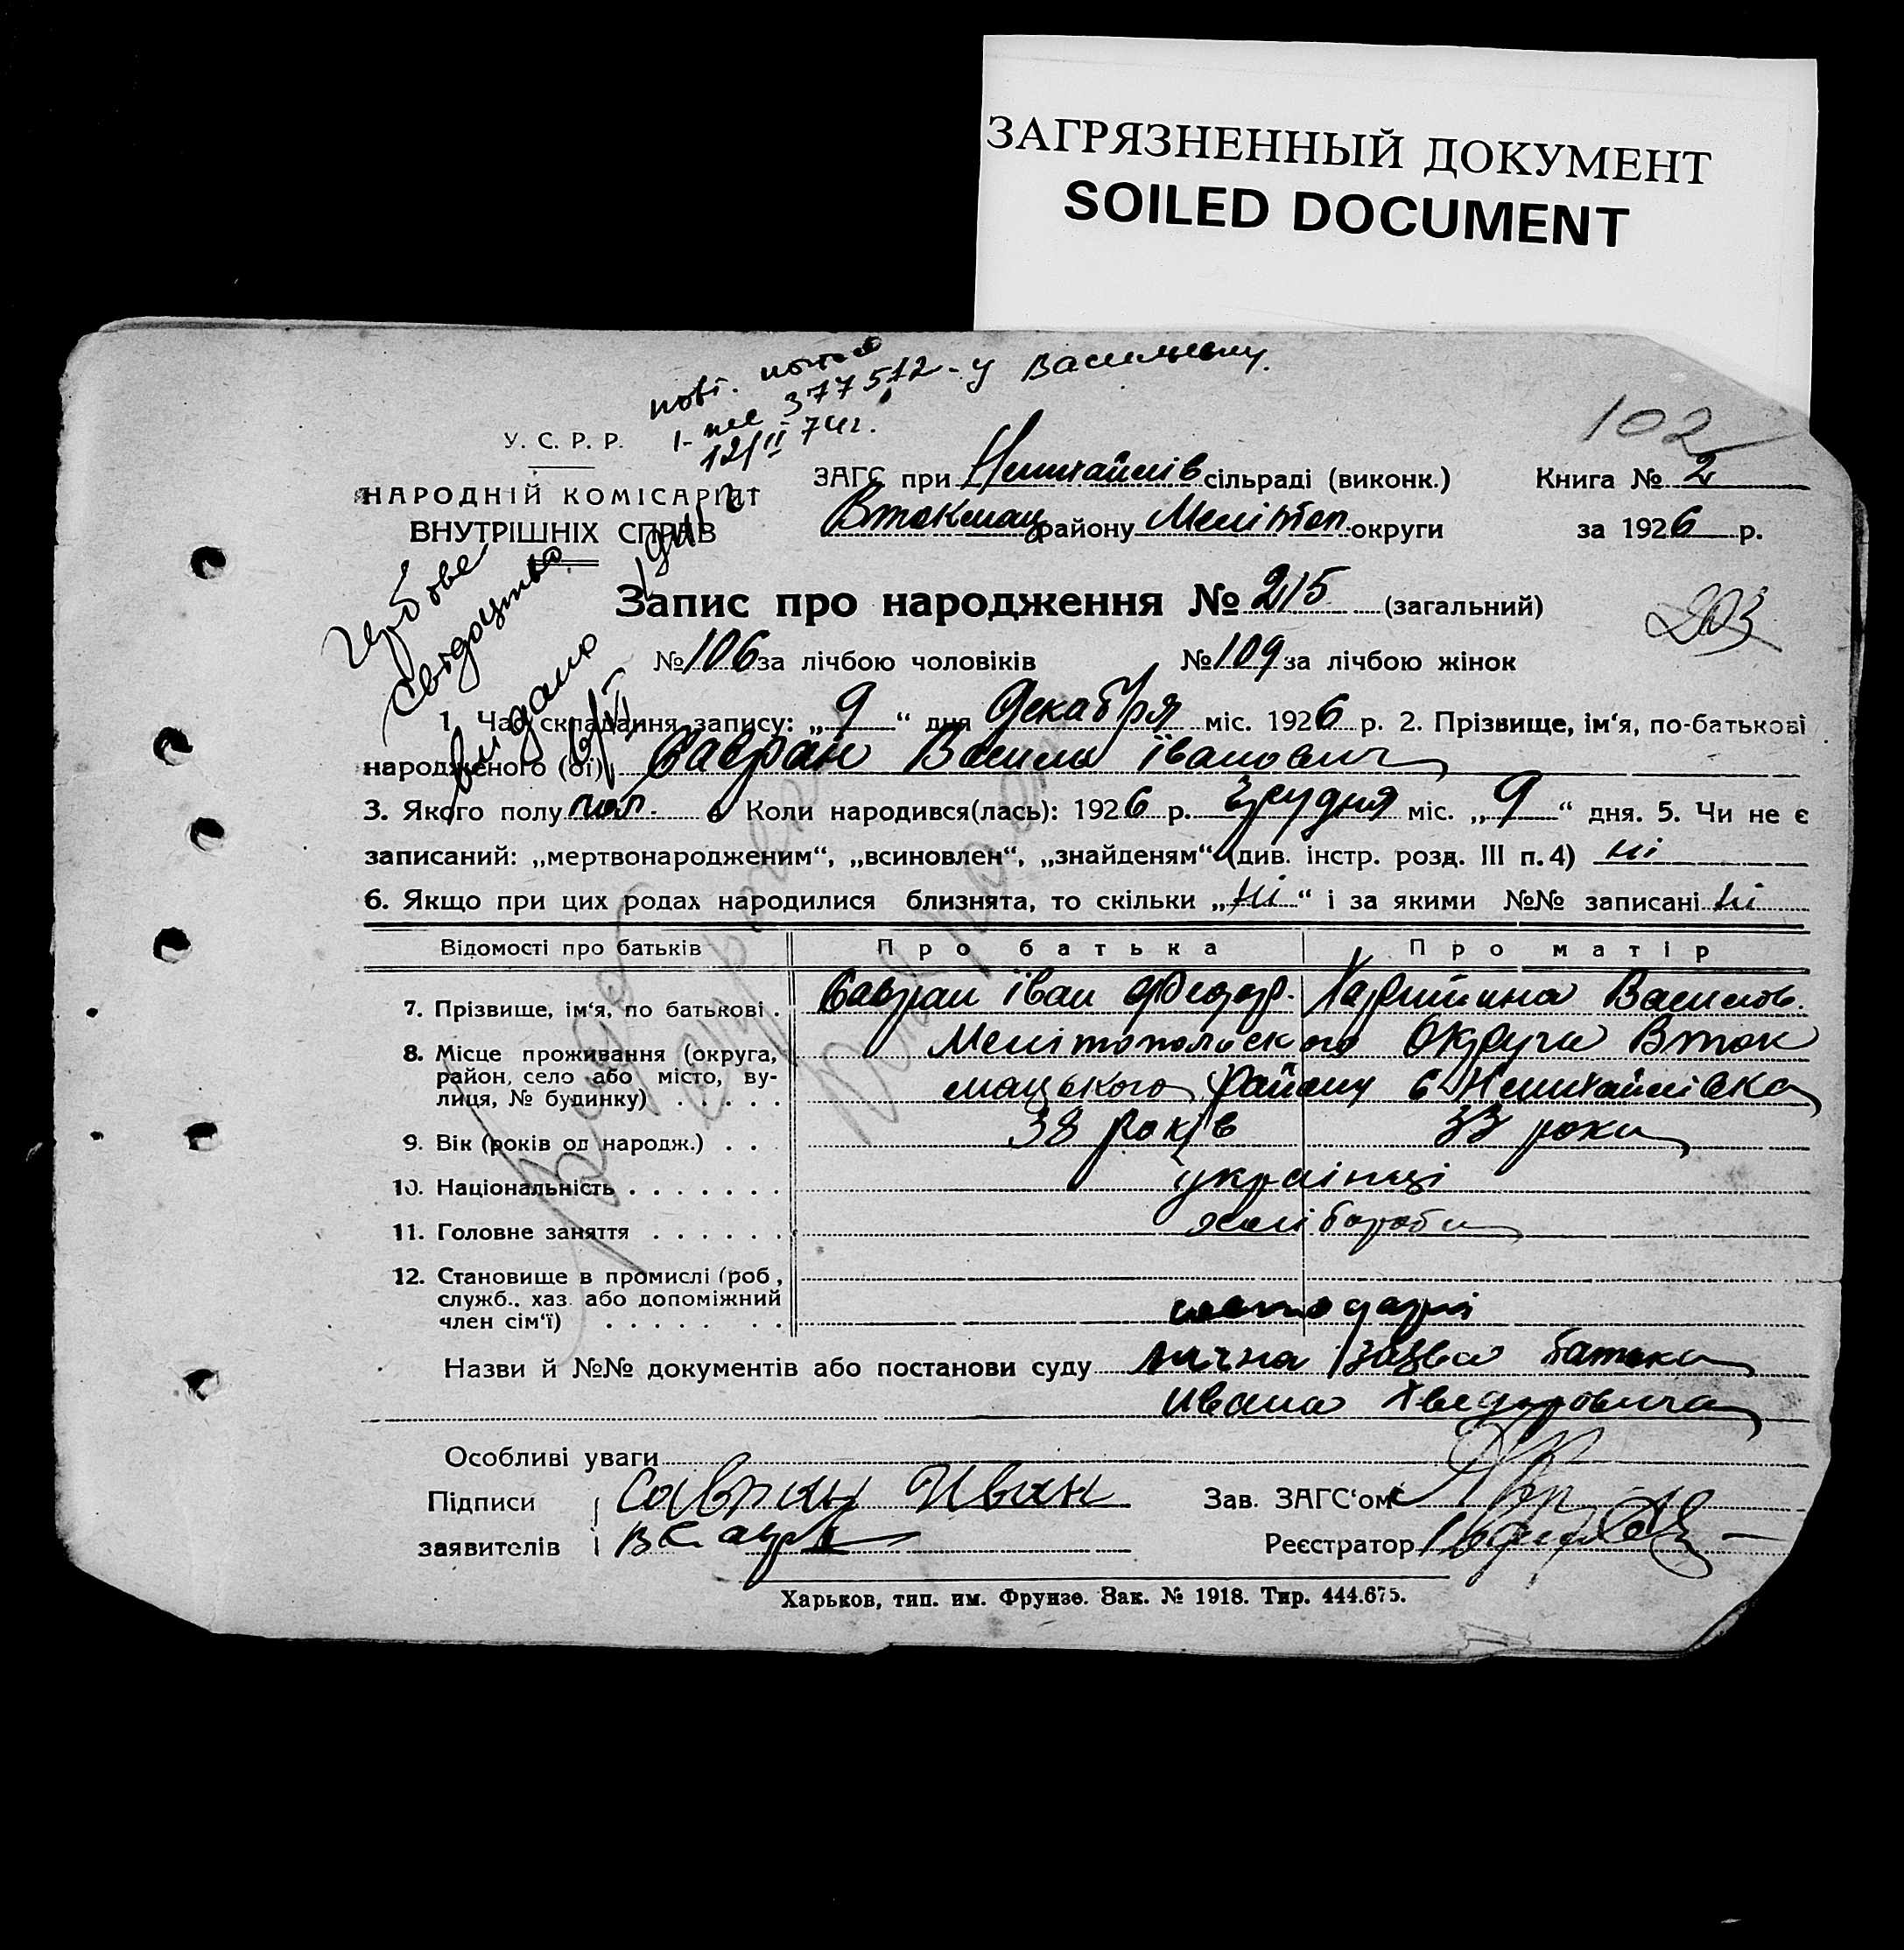 ЗАГРЯЗНЕННЫЙ ДОКУМЕНТ
SOILED DOCUMENT
377512 - у Василькову.
12/II 74г.
102
У. С. Р. Р.
НАРОДНІЙ КОМІСАРІЯТ
ВНУТРІШНІХ СПРАВ
ЗАГС при сільраді (виконк.) Книга № 2
Втокмац району Мелітоп. округи за 1926 р.
Гербове
свідоцтво
видано
Запис про народження № 215 (загальний)
203
№ 106 за лічбою чоловіків № 109 за лічбою жінок
1. Час складання запису: „9“ дня Декабря міс. 1926 р. 2. Прізвище, ім‘я, по-батькові
народженого (ої) Савран Василь Іванович
3. Якого полу чол. Коли народився(лась): 1926 р. Грудня міс. „9“ дня. 5. Чи не є
записаний: „мертвонародженим“, „всиновлен“, „знайденям“ (див. інстр. розд. III п. 4) ні
6. Якщо при цих родах народилися близнята, то скільки „ні“ і за якими №№ записані ні
Відомості про батьків Про батька Про матір
7. Прізвище, ім‘я, по батькові . Савран Іван Федор. Харитина Васильов.
8. Місце проживання (округа, Мелітопольского Округа Вток
район, село або місто, ву- мацького району с
лиця, № будинку) . . . . .
9. Вік (років од народж.) . . 38 років 33 роки
10. Національність . . . . . . . українці
11. Головне заняття . . . . . . хлібороби
12. Становище в промислі (роб.,
служб., хаз. або допоміжний
член сім‘ї) . . . . . . . господарі
Назви й №№ документів або постанови суду лична заява батька
Ивана Хведоровича
Особливі уваги
Підписи Савран Иван Зав. ЗАГС‘ом
заявителів Реєстратор
Харьков, тип. им. Фрунзе. Зак. № 1918. Тир. 444.675.